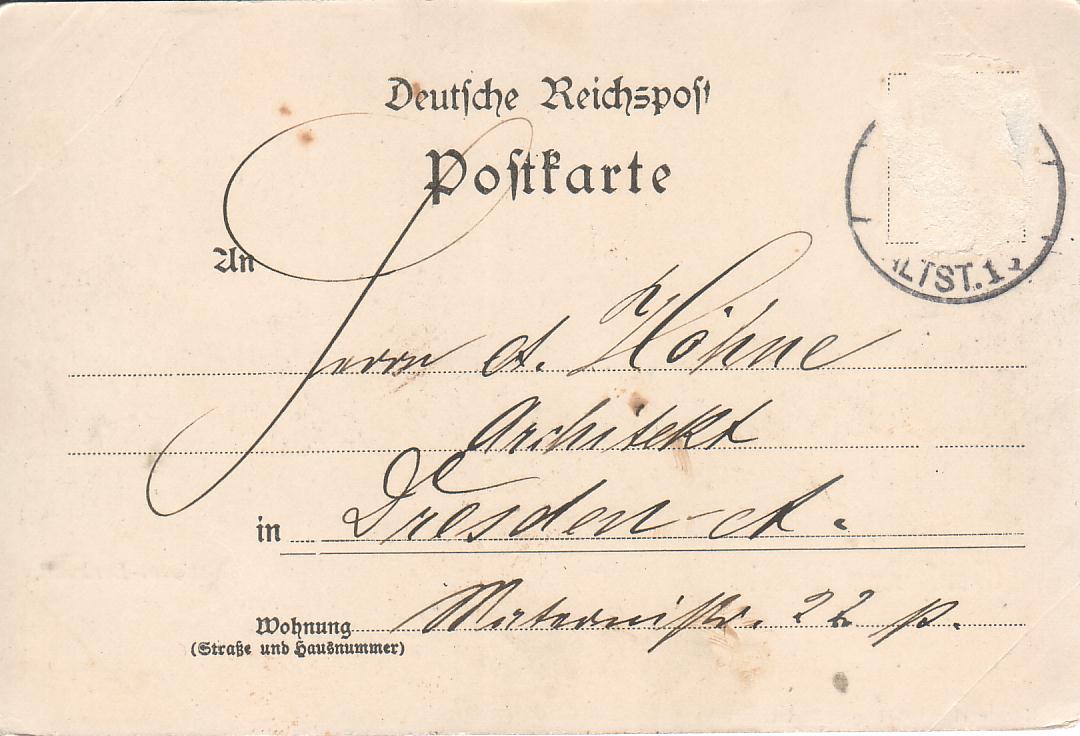 Deutsche Reichspost
Postkarte
An
ALTST. 1
Herrn A. Höhne
Architekt
in Dresden-A.
Wohnung Maternistr. 22 p.
(Straße und Hausnummer)